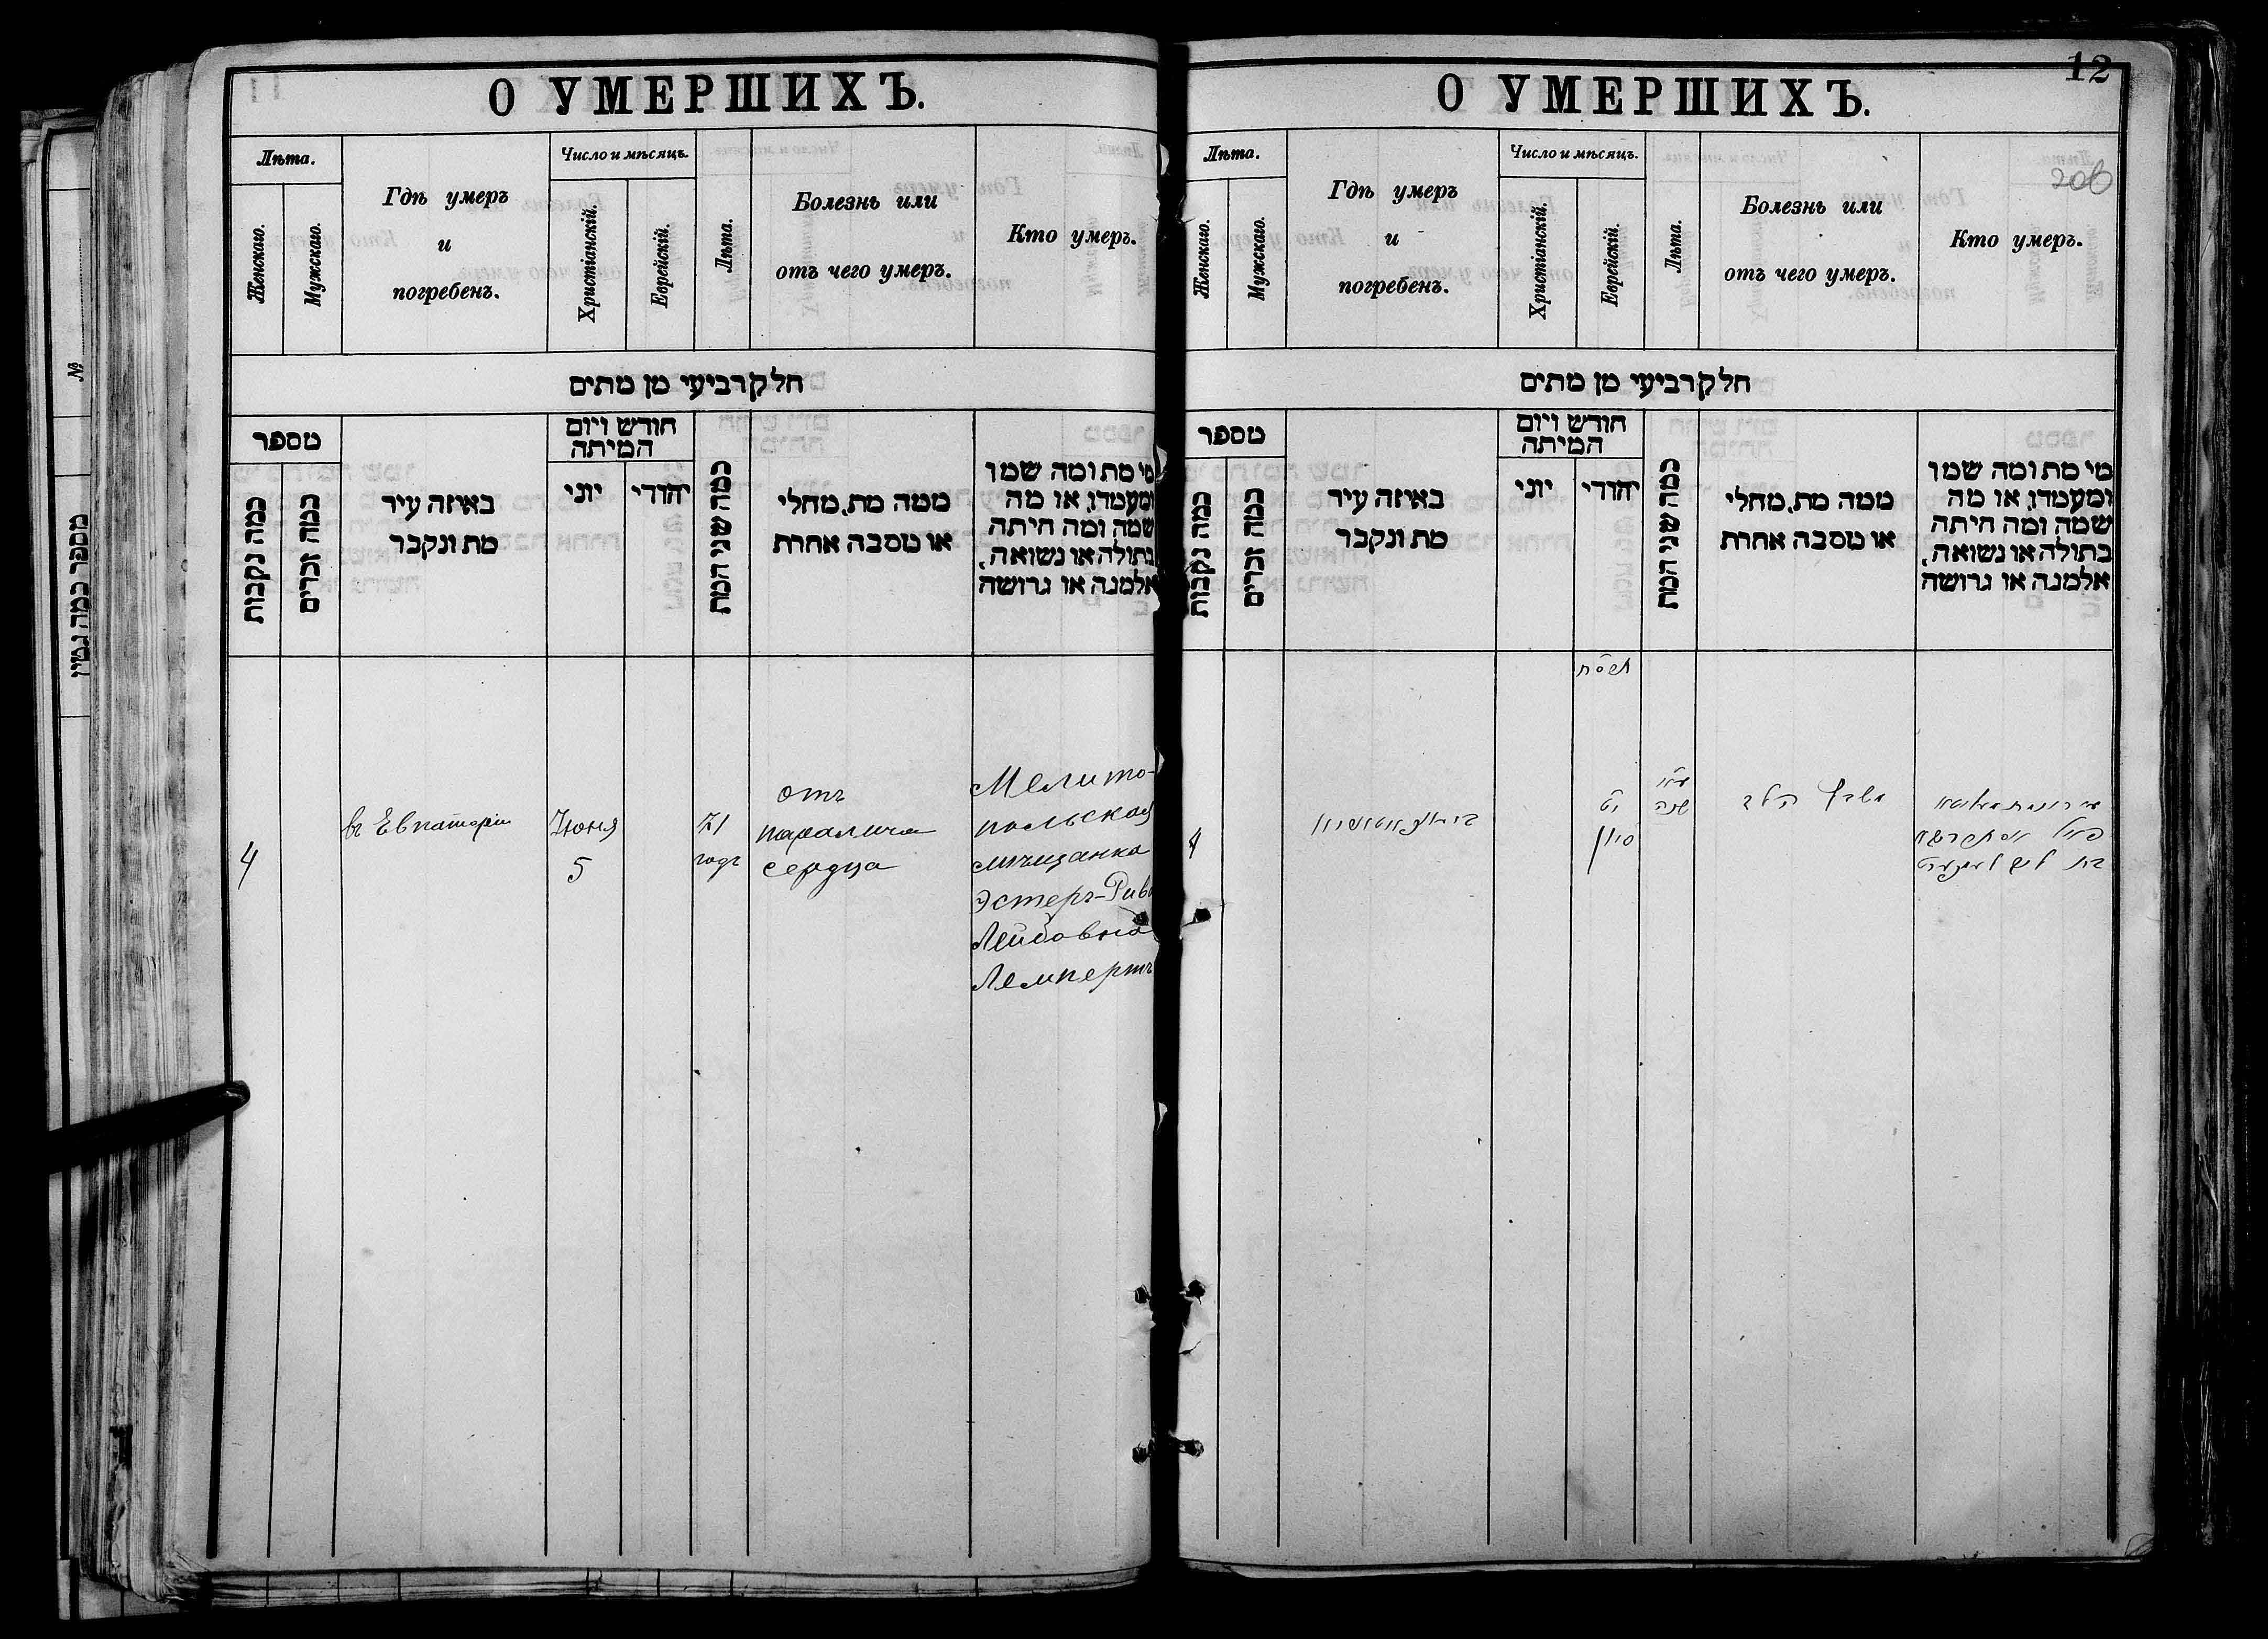 О УМЕРШИХЪ.
Лѣта.
Женскаго.
Мужскаго.
Гдѣ умеръ
и
погребенъ.
Число и мѣсяцъ.
Христіанскій.
Еврейскій.
Лѣта.
Болезнь или
отъ чего умеръ.
Кто умеръ.
חלק רביעי מן מתים
מספר
כמה נקבות
כמה זכרים
באיזה עיר
מת ונקבר
חודש ויום
המיתה
יוני
יהודי
כמה שני המת
ממה מת, מחלי
או מסבה אחרת
מי מת ומה שמו
ומעמדו, או מה
שמה ומה היתה
בתולה או נשואה,
אלמנה או גרושה
4
въ Евпаторіи
Іюня
5
71
годъ
отъ
паралича
сердца
Мелито-
польская
мѣщанка
Эстеръ-Рива
Лейбовна
Лемпертъ
12
206
О УМЕРШИХЪ.
Лѣта.
Женскаго.
Мужскаго.
Гдѣ умеръ
и
погребенъ.
Число и мѣсяцъ.
Христіанскій.
Еврейскій.
Лѣта.
Болезнь или
отъ чего умеръ.
Кто умеръ.
חלק רביעי מן מתים
מספר
כמה נקבות
כמה זכרים
באיזה עיר
מת ונקבר
חודש ויום
המיתה
יוני
יהודי
כמה שני המת
ממה מת, מחלי
או מסבה אחרת
מי מת ומה שמו
ומעמדו, או מה
שמה ומה היתה
בתולה או נשואה,
אלמנה או גרושה
4
סיון
ע״א
שנה
הלב
№
מספר כמה גטין